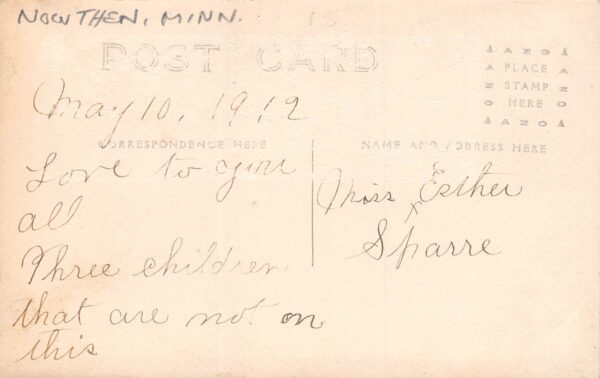 NOWTHEN, MINN.
15
POST CARD
AZO
PLACE
STAMP
HERE
AZO
May 10, 1912
CORRESPONDENCE HERE
NAME AND ADDRESS HERE
Love to you
all
Three children
that are not on
this
Miss Esther
Sparre